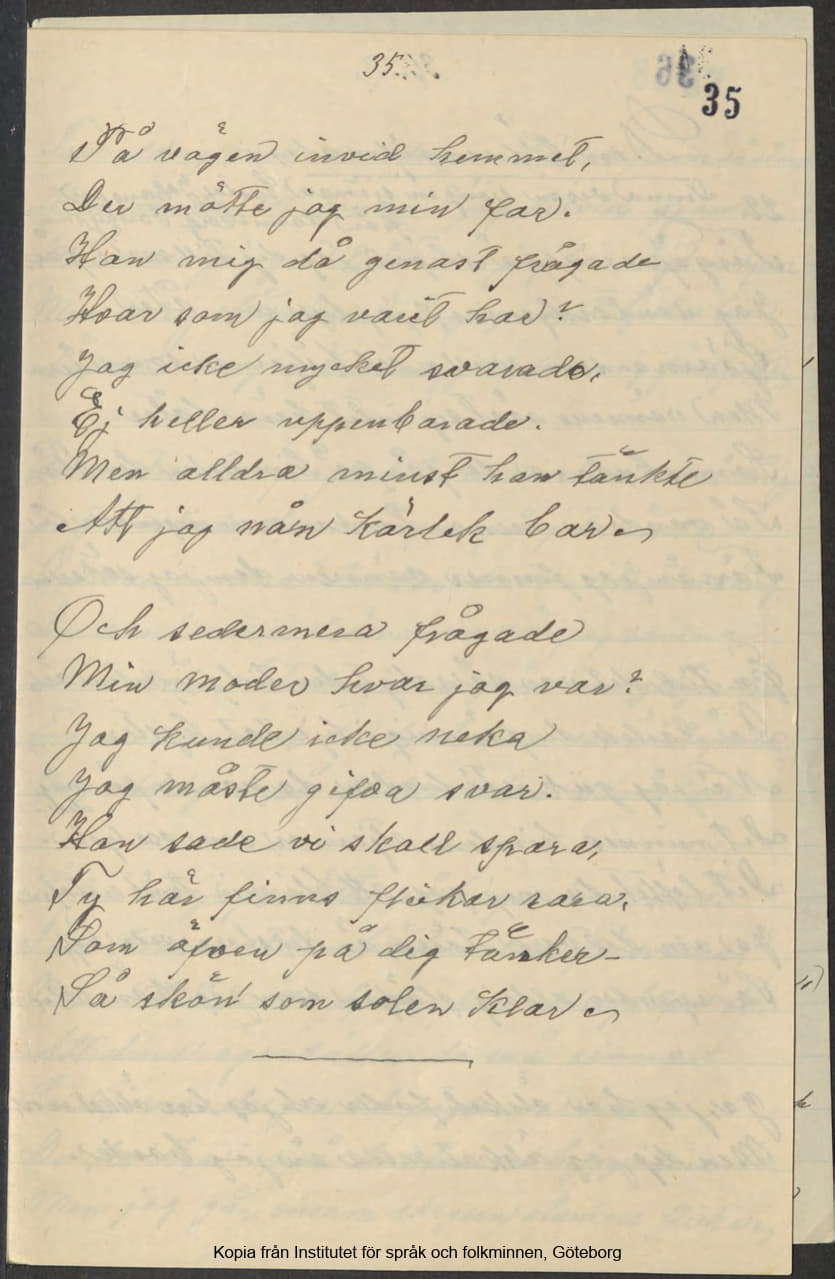 35.
35
På vägen invid hemmet,
Der mötte jag min far.
Han mig då genast frågade
Hvar som jag varit har?
Jag icke mycket svarade,
Ej heller uppenbarade.
Men alldra minst han tänkte
Att jag nån kärlek bar.
Och sedermera frågade
Min moder hvar jag var?
Jag kunde icke neka
Jag måste gifva svar.
Hon sade vi skall spara,
Ty här finns flickor rara,
Som äfven på dig tänker
Så skön som solen klar.
Kopia från Institutet för språk och folkminnen, Göteborg